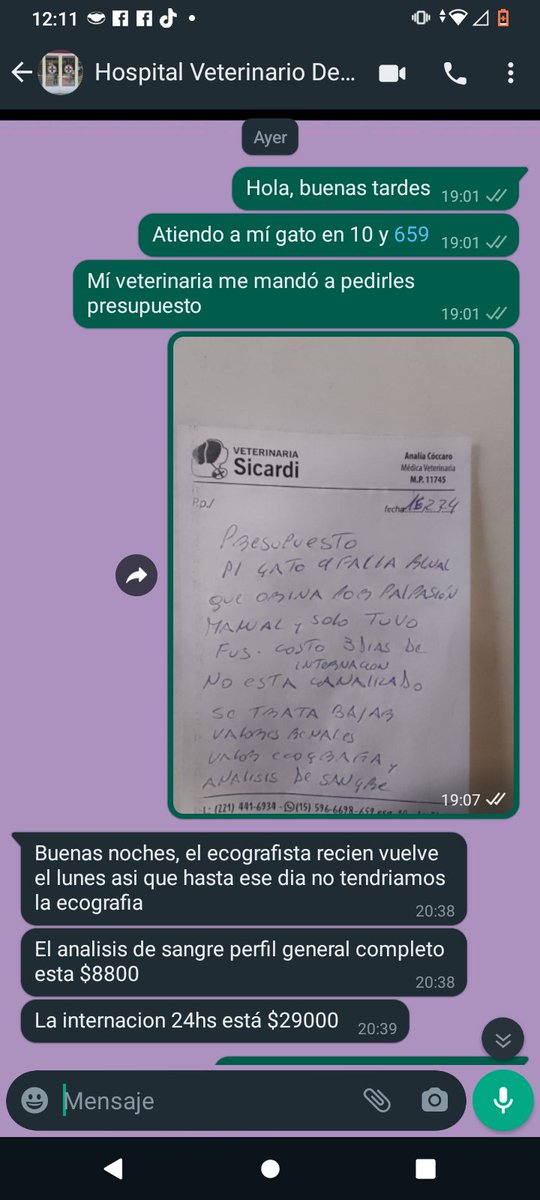 12:11
Hospital Veterinario De...
Ayer
Hola, buenas tardes 19:01
Atiendo a mí gato en 10 y 659 19:01
Mí veterinaria me mandó a pedirles
presupuesto 19:01
VETERINARIA
Sicardi
Analía Cóccaro
Médica Veterinaria
M.P. 11745
fecha
Presupuesto
GATO
que orina por palpasión
manual y solo tuvo
costo 3 dias de
internacion
No esta canalizado
se trata bajar
valores renales
valor ecografia y
analisis de sangre
(221) 441-6934 - (15) 596-6698
19:07
Buenas noches, el ecografista recien vuelve
el lunes asi que hasta ese dia no tendriamos
la ecografia 20:38
El analisis de sangre perfil general completo
esta $8800 20:38
La internacion 24hs está $29000 20:39
Mensaje